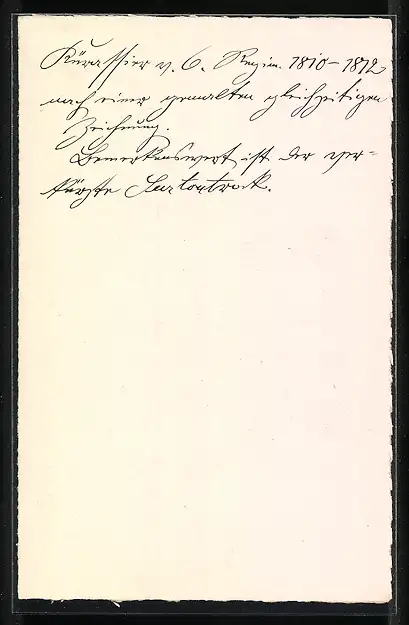 Kürassier v. 6. Regim. 1810–1812
nach einer gemalten gleichzeitigen
Zeichnung.
Bemerkenswert ist der ver=
kürzte Surtoutrock.